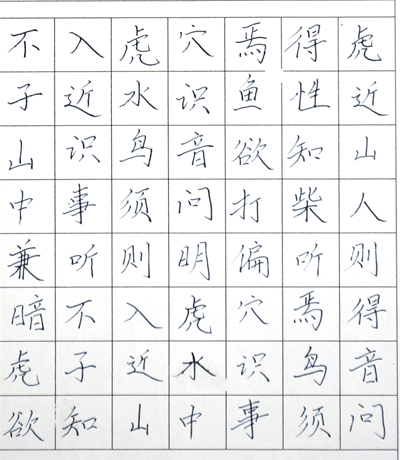 不入虎穴焉得虎
子近水识鱼性近
山识鸟音欲知山
中事须问打柴人
兼听则明偏听则
暗不入虎穴焉得
虎子近水识鸟音
欲知山中事须问